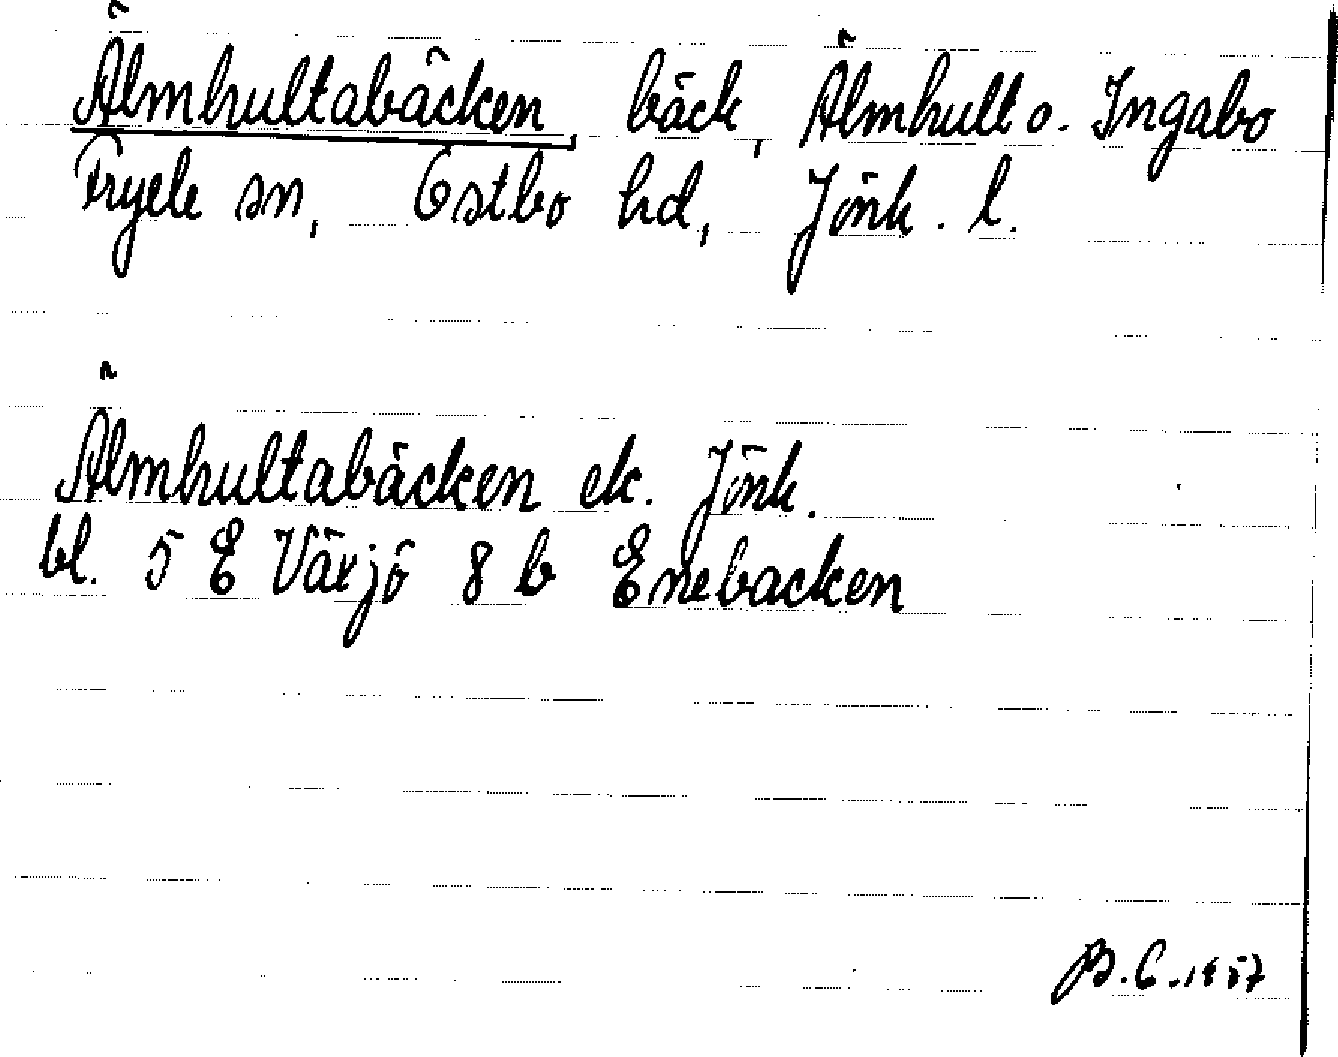 Älmhultabäcken, bäck, Älmhult o. Ingabo
Fryele sn, Östbo hd, Jönk. l.
Älmhultabäcken ek. Jönk.
bl. 5 E Växjö 8 b Enebacken
B.C. 1957